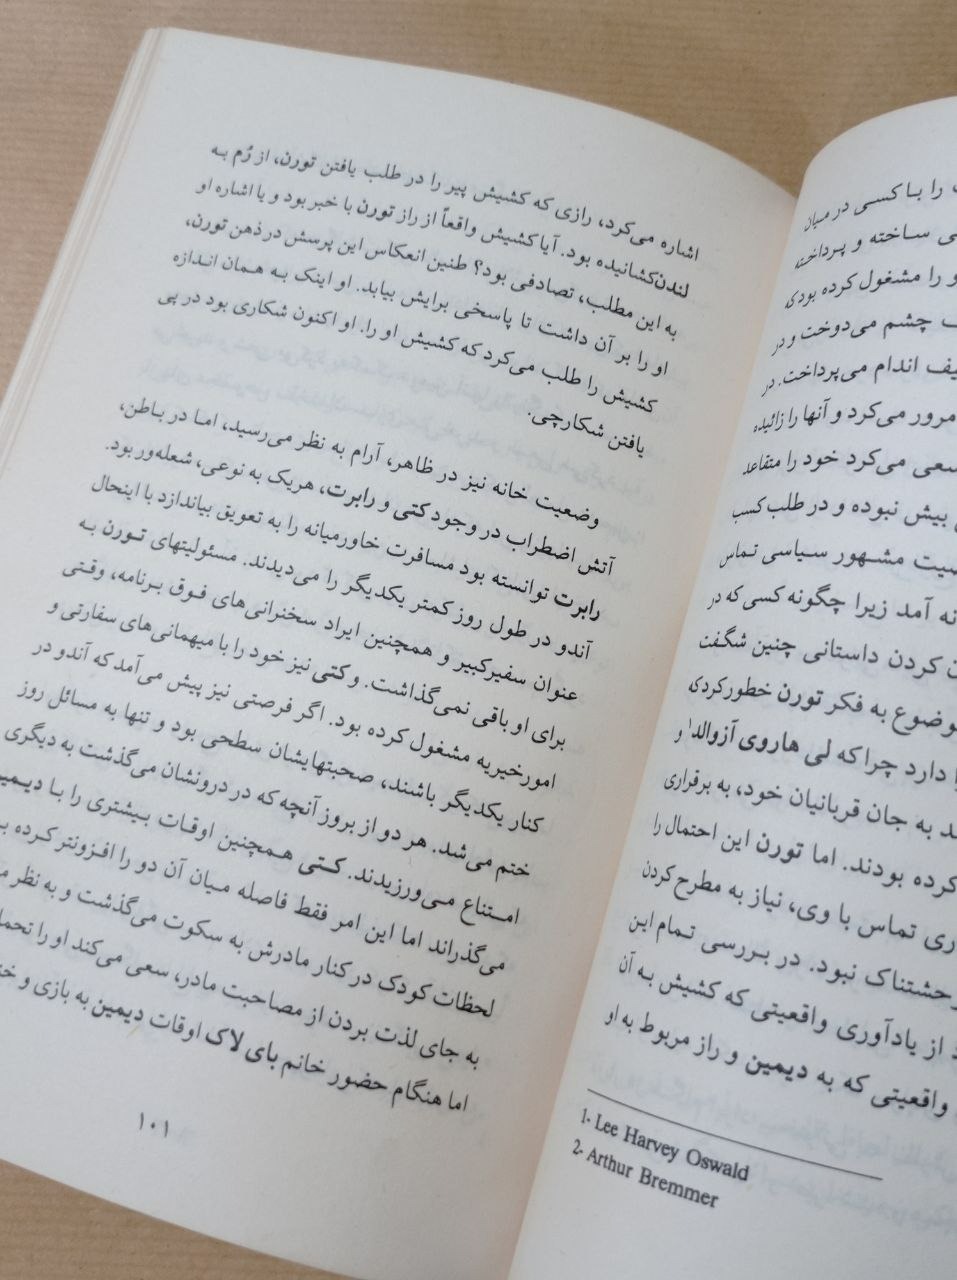 را با کسی در میان
ساخته و پرداخته
و را مشغول کرده بود که
چشم می‌دوخت و در
اندام می‌پرداخت. در
مرور می‌کرد و آنها را زائیده
سعی می‌کرد خود را متقاعد
بیش نبوده و در طلب کسب
مشهور سیاسی تماس
آمد زیرا چگونه کسی که در
کردن داستانی چنین شگفت
به فکر تورن خطور کرد که
دارد چرا که لی هاروی آزوالد¹ و
به جان قربانیان خود، به برقراری
کرده بودند. اما تورن این احتمال را
تماس با وی، نیاز به مطرح کردن
نبود. در بررسی تمام این
از یادآوری واقعیتی که کشیش به آن
واقعیتی که به دیمین و راز مربوط به او
1- Lee Harvey Oswald
2- Arthur Bremmer
اشاره می‌کرد، رازی که کشیش پیر را در طلب یافتن تورن، از رُم به
لندن‌کشانیده بود. آیا کشیش واقعاً از راز تورن با خبر بود و یا اشاره او
به این مطلب، تصادفی بود؟ طنین انعکاس این پرسش در ذهن تورن،
او را بر آن داشت تا پاسخی برایش بیابد. او اینک به همان اندازه
کشیش را طلب می‌کرد که کشیش او را. او اکنون شکاری بود در پی
یافتن شکارچی.
وضعیت خانه نیز در ظاهر، آرام به نظر می‌رسید، اما در باطن،
آتش اضطراب در وجود کتی و رابرت، هریک به نوعی، شعله‌ور بود.
رابرت توانسته بود مسافرت خاورمیانه را به تعویق بیاندازد با اینحال
آندو در طول روز کمتر یکدیگر را می‌دیدند. مسئولیتهای تورن به
عنوان سفیرکبیر و همچنین ایراد سخنرانی‌های فوق برنامه، وقتی
برای او باقی نمی‌گذاشت. و کتی نیز خود را با میهمانی‌های سفارتی و
امورخیریه مشغول کرده بود. اگر فرصتی نیز پیش می‌آمد که آندو در
کنار یکدیگر باشند، صحبتهایشان سطحی بود و تنها به مسائل روز
ختم می‌شد. هر دو از بروز آنچه که در درونشان می‌گذشت به دیگری
امتناع می‌ورزیدند. کتی همچنین اوقات بیشتری را با
می‌گذراند اما این امر فقط فاصله میان آن دو را افزونتر کرده
لحظات کودک در کنار مادرش به سکوت می‌گذشت و به نظر
به جای لذت بردن از مصاحبت مادر، سعی می‌کند او را
اما هنگام حضور خانم بای لاک اوقات دیمین به بازی و
۱۰۱